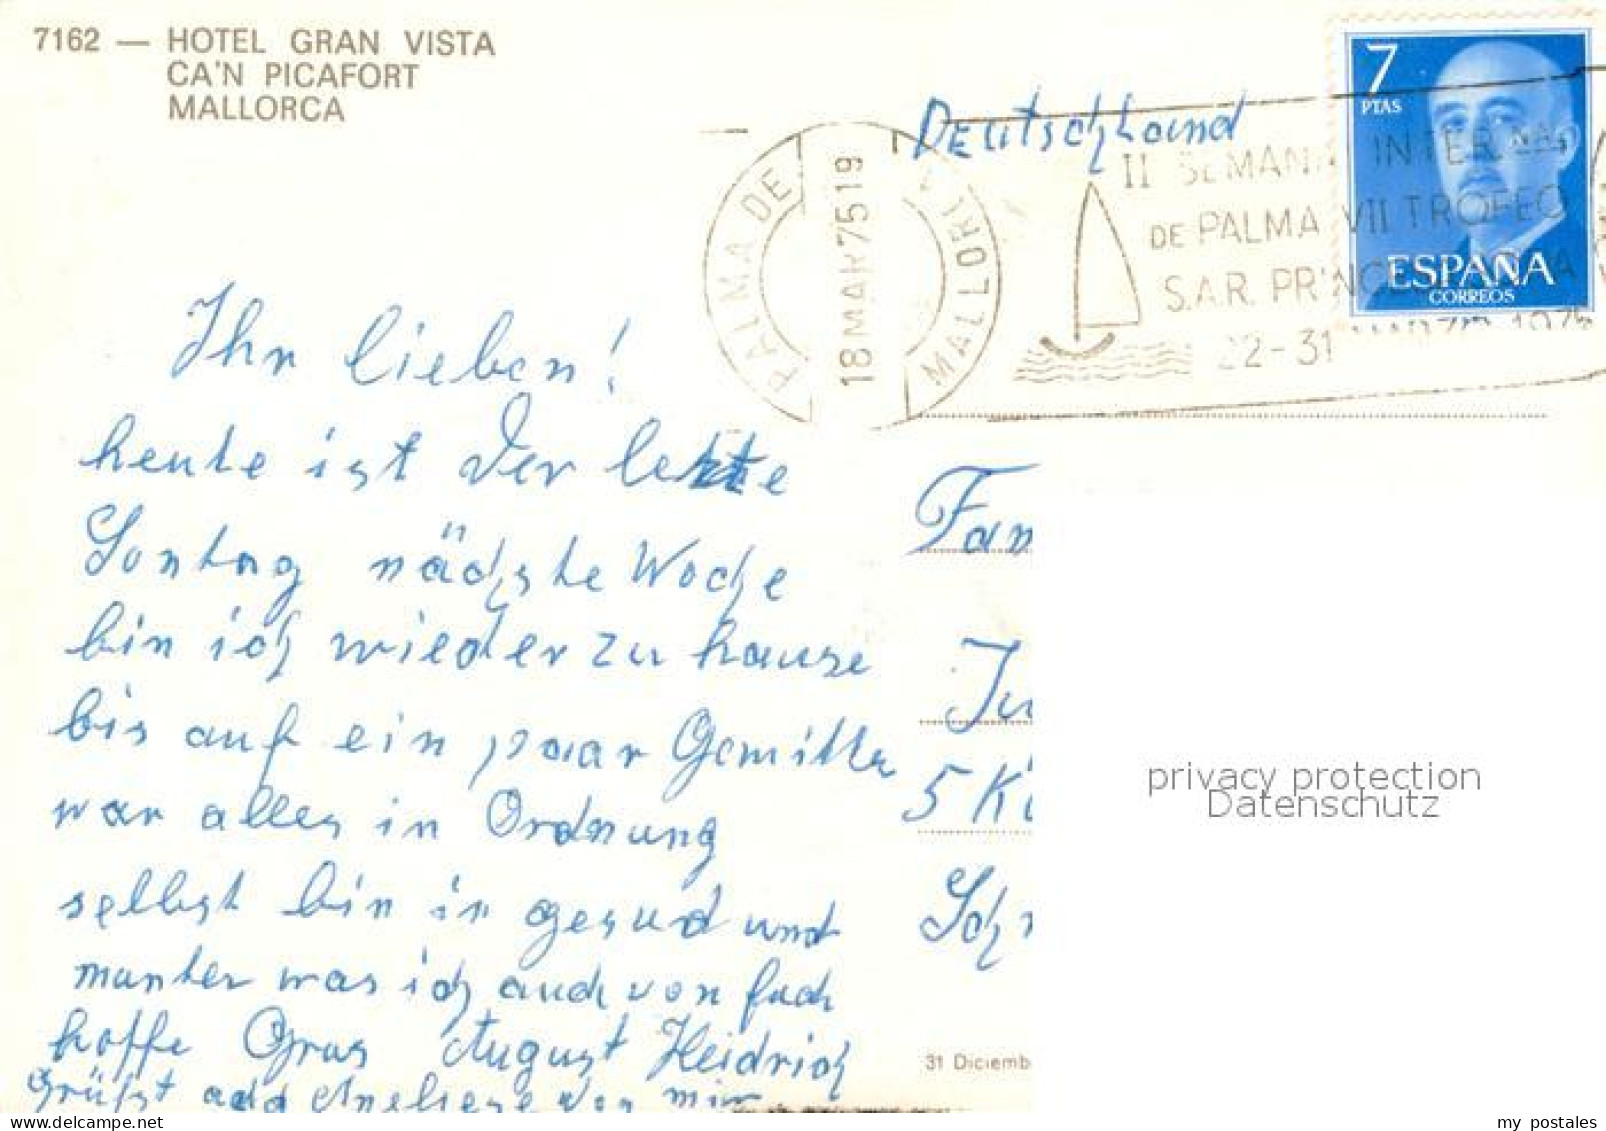 7162 — HOTEL GRAN VISTA
CA'N PICAFORT
MALLORCA
7
PTAS
ESPAÑA
CORREOS
PALMA DE MALLORCA
18 MAR 75 19
II SEMANA INTERNA
DE PALMA VII TROFEO
S.A.R. PRINCE
22-31 MARZO 1975
Deutschland
Ihr lieben!
heute ist der letzte
Sontag nächste Woche
bin ich wieder zu hause
bis auf ein paar Gemitter
war alles in Ordnung
selbst bin ir gesud und
munter was ich auch von Euch
hoffe Grus August Heidrich
Grüßt Aneliese von mir
Fam
Ju
5 Kö
Schr
31 Diciemb
privacy protection
Datenschutz
my postales